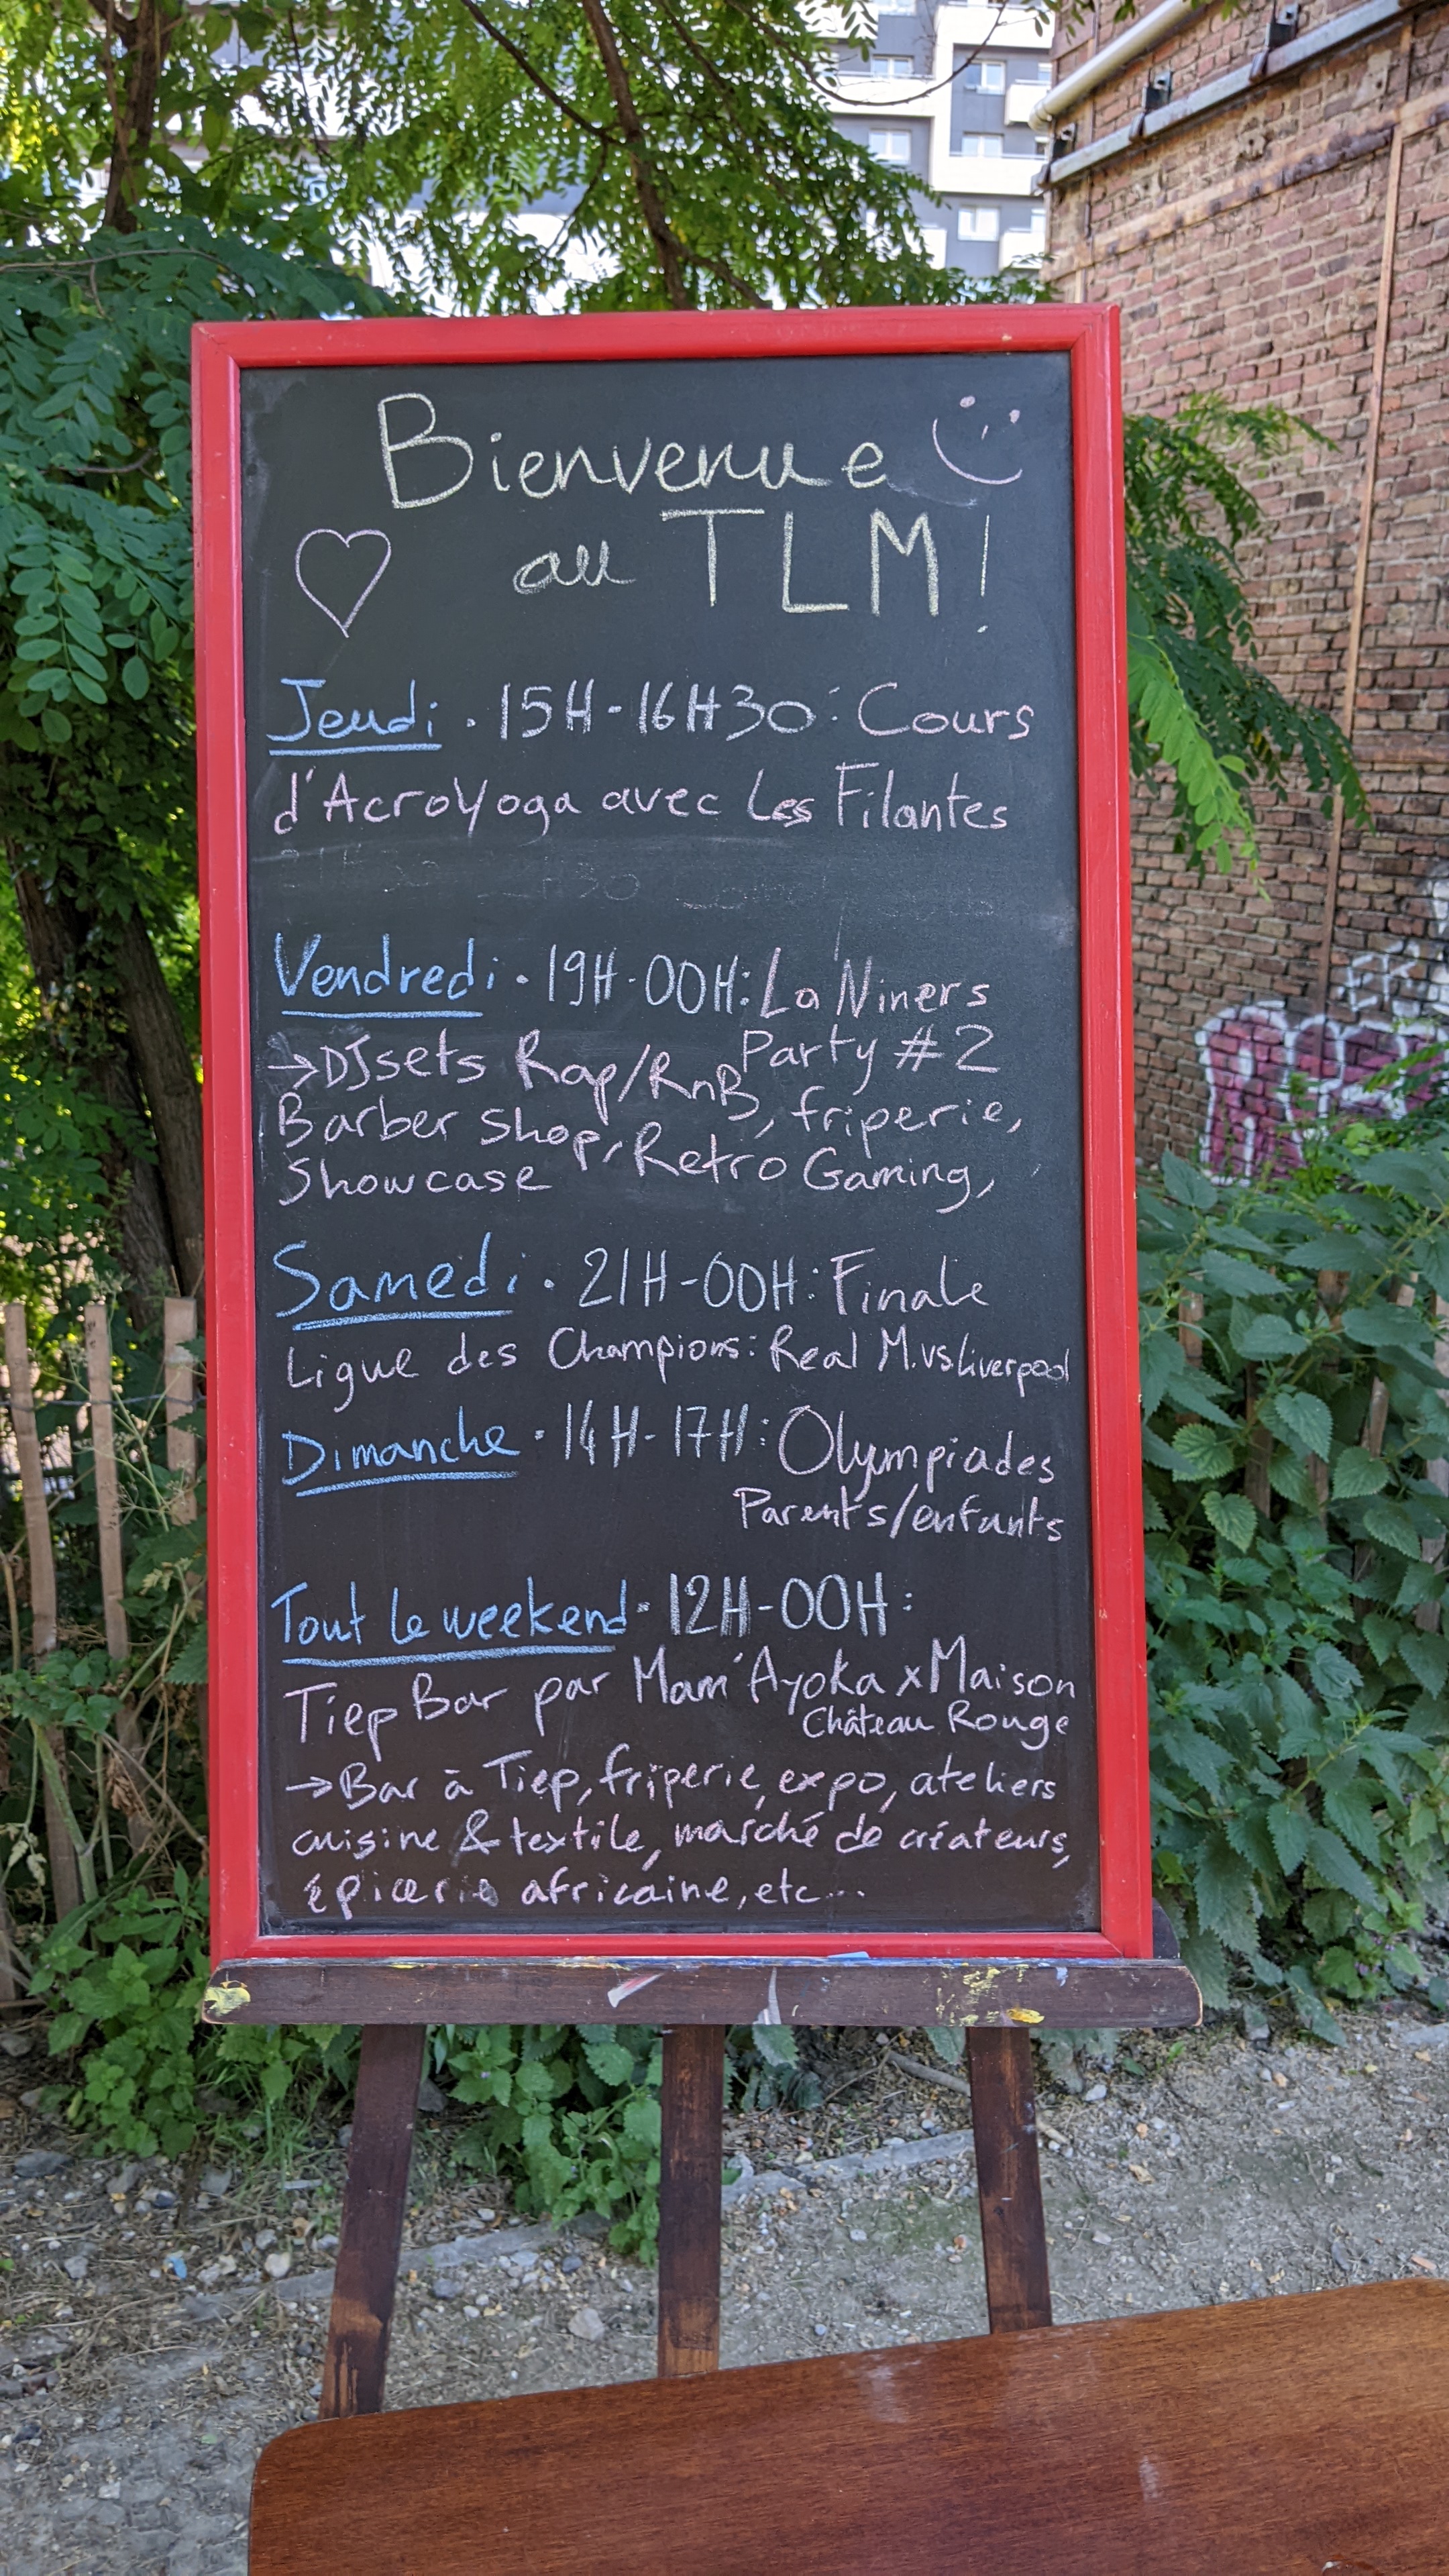 Bienvenue
au TLM!
Jeudi • 15H-16H30: Cours
d'AcroYoga avec Les Filantes
Vendredi • 19H-00H: La Niners
Party #2
→DJsets Rap/RnB, friperie,
Barber Shop, Retro Gaming,
Showcase
Samedi • 21H-00H: Finale
Ligue des Champions: Real M. vs Liverpool
Dimanche • 14H-17H: Olympiades
Parents/enfants
Tout le weekend • 12H-00H:
Tiep Bar par Mam'Ayoka x Maison
Château Rouge
→Bar à Tiep, friperie, expo, ateliers
cuisine & textile, marché de créateurs,
épicerie africaine, etc...